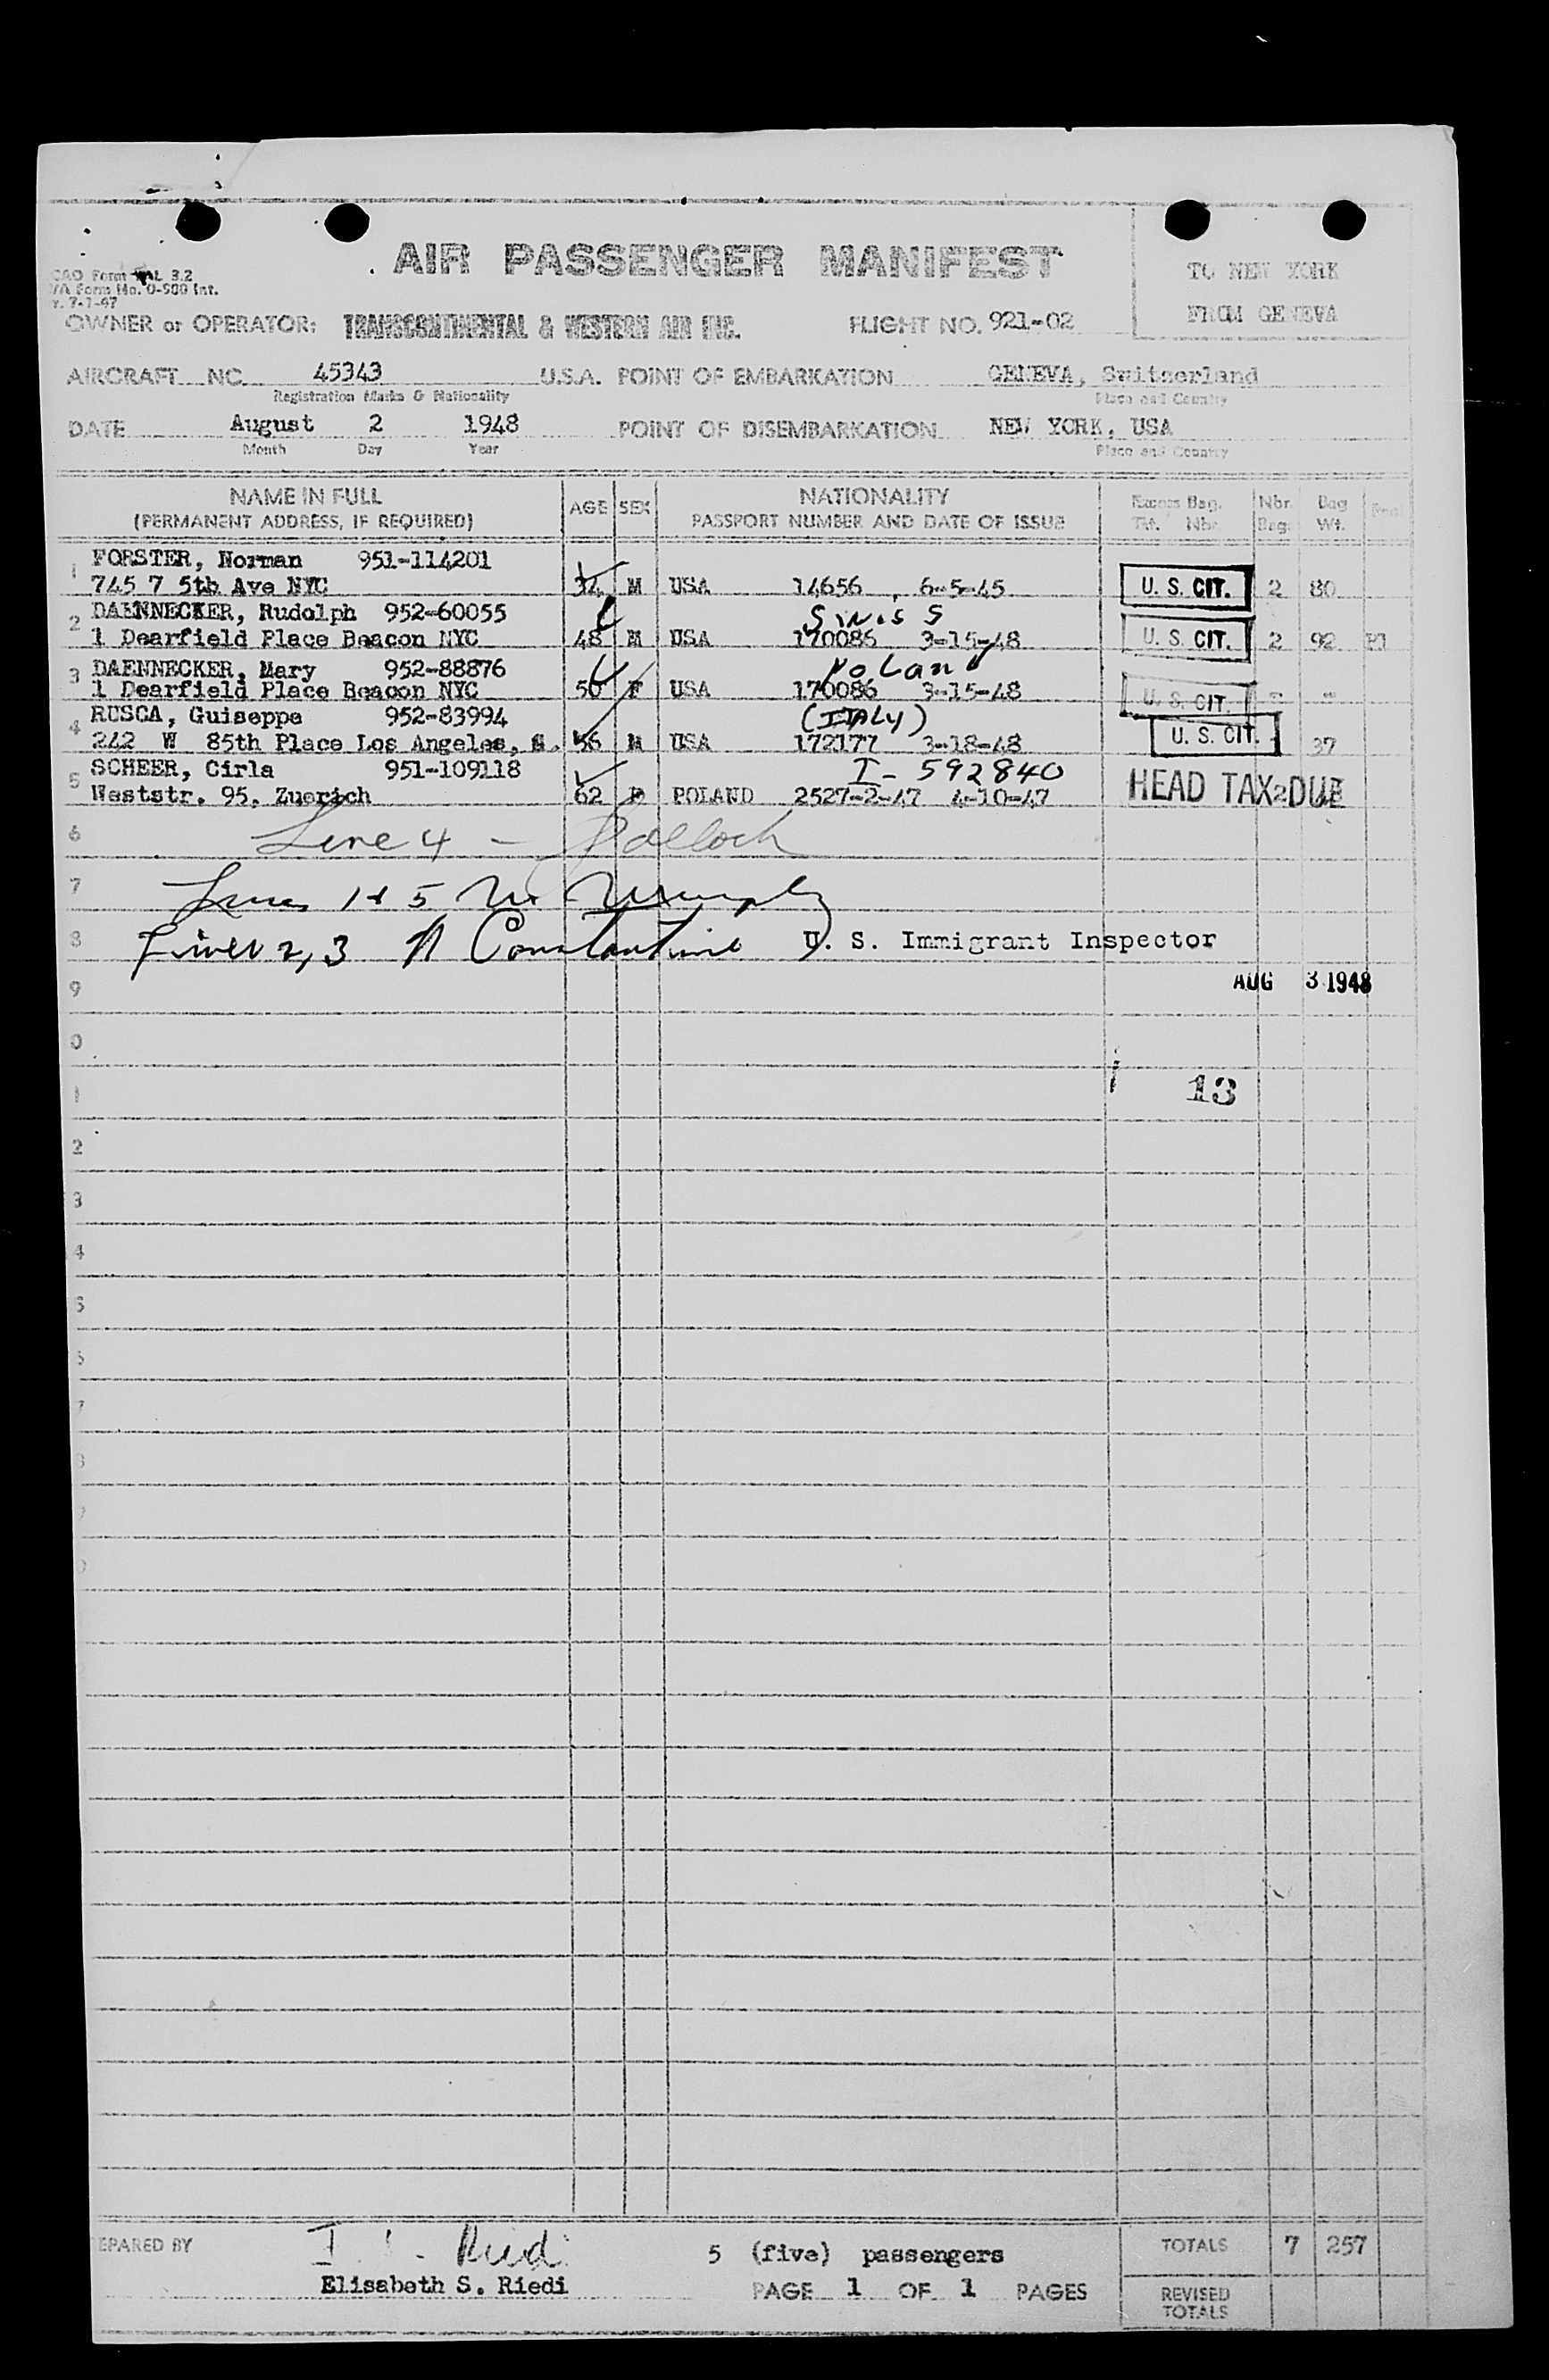 AIR PASSENGER MANIFEST
TO NEW YORK
FROM GENEVA
Form 3.2
Form No. O-900 Int.
7-1-47
OWNER or OPERATOR: TRANSCONTINENTAL & WESTERN AIR INC. FLIGHT NO. 921-02
AIRCRAFT NC 45343 U.S.A. POINT OF EMBARKATION GENEVA, Switzerland
Registration Marks & Nationality Place and Country
DATE August 2 1948 POINT OF DISEMBARKATION NEW YORK, USA
Month Day Year Place and Country
NAME IN FULL AGE SEX NATIONALITY Excess Bag. Nbr. Bag
(PERMANENT ADDRESS, IF REQUIRED) PASSPORT NUMBER AND DATE OF ISSUE Tkt. Nbr. Bags Wt.
1 FORSTER, Norman 951-114201
745 7 5th Ave NYC 34 M USA 14656 6-5-45 U. S. CIT. 2 80
2 DAENNECKER, Rudolph 952-60055 Swiss
1 Dearfield Place Beacon NYC 48 M USA 170086 3-15-48 U. S. CIT. 2 92
3 DAENNECKER, Mary 952-88876 Poland
1 Dearfield Place Beacon NYC 50 F USA 170086 3-15-48 U. S. CIT. - -
4 RUSCA, Guiseppe 952-83994 (ITALY)
242 W 85th Place Los Angeles, 56 M USA 172177 3-18-48 U. S. CIT. 37
5 SCHEER, Cirla 951-109118 I- 592840
Weststr. 95, Zuerich 62 F POLAND 2527-2-47 4-10-47 HEAD TAX DUE 2
6 Line 4 -
7 Lines 1 & 5
8 Lines 2, 3 Constantine U. S. Immigrant Inspector
9 AUG 3 1948
0
1 13
2
3
4
5
EPARED BY Riedi TOTALS 7 257
5 (five) passengers
Elisabeth S. Riedi
PAGE 1 OF 1 PAGES REVISED
TOTALS